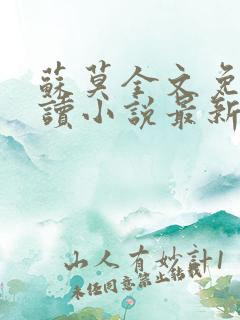 蘇莫全文免
讀小說最新
山人有妙計1
未经同意禁止转载